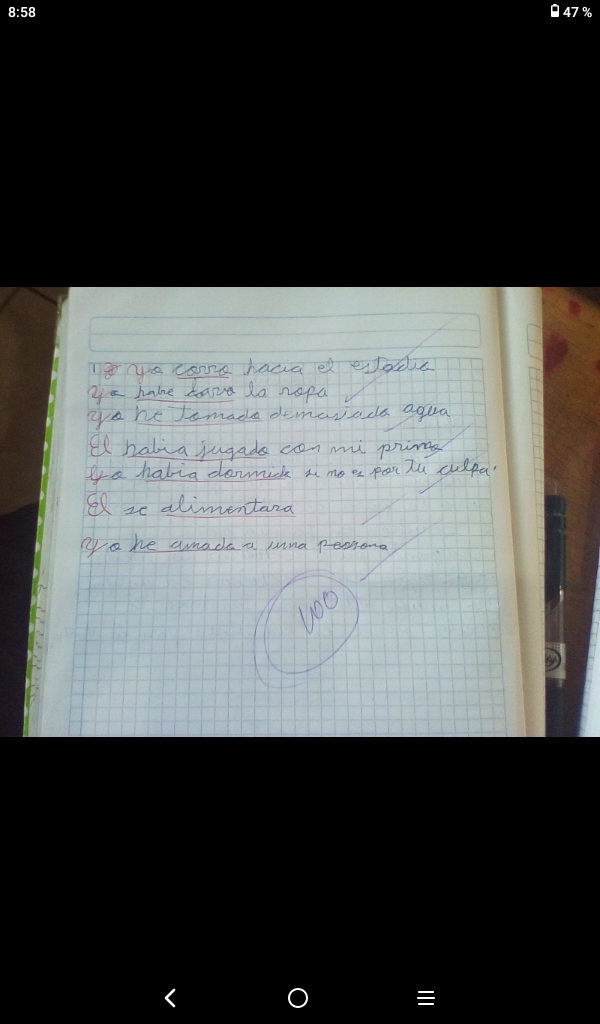 8:58
47 %
Yo corro hacia el estadio
Yo habre la ropa
Yo he tomado demasiada agua
El habia jugado con mi primo
Yo habia dormido si no es por tu culpa.
El se alimentara
Yo he amado a una persona
100